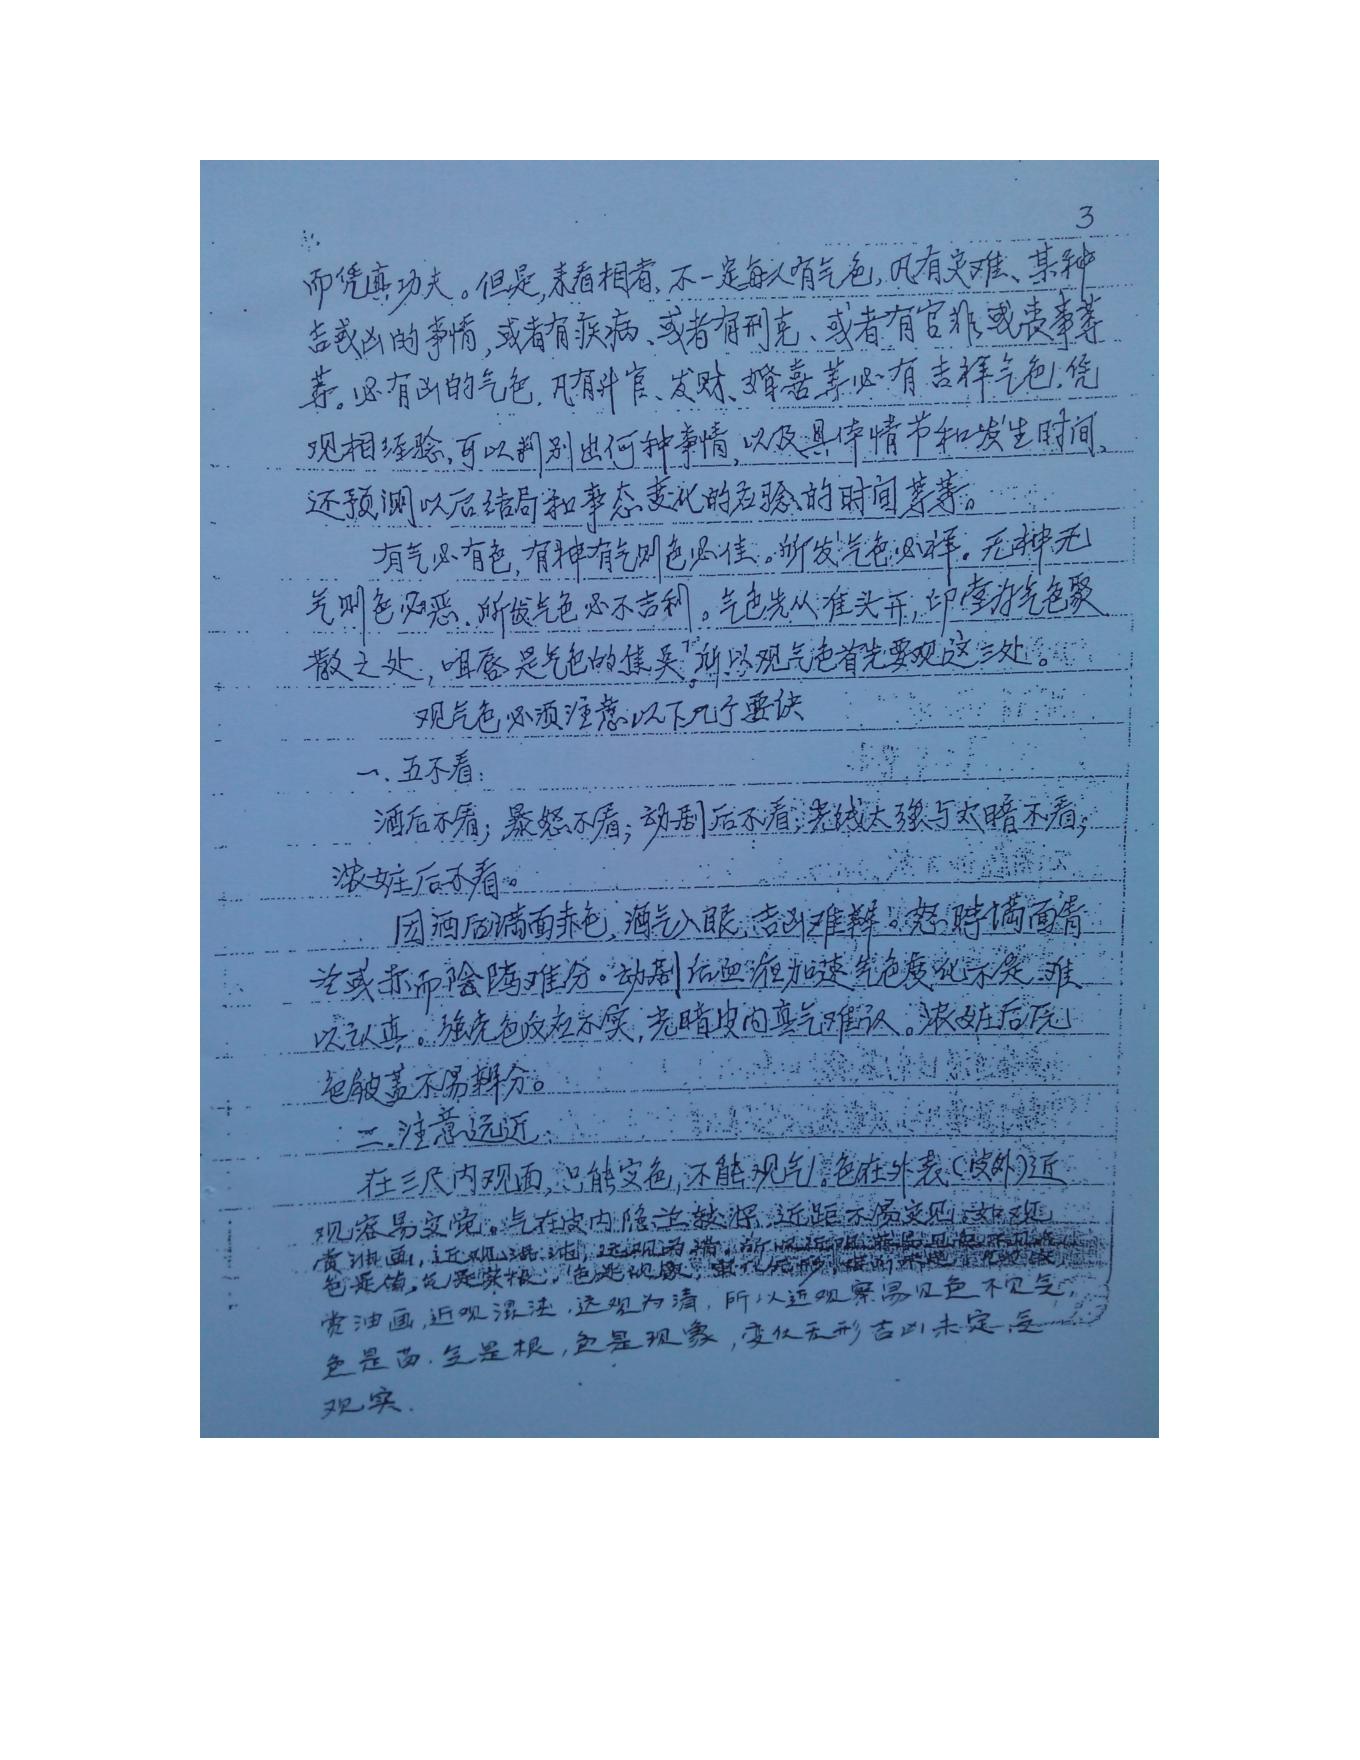 3
而凭真功夫。但是,来看相者,不一定每人有气色,凡有灾难、某种
吉或凶的事情,或者有疾病、或者有刑克、或者有官非或丧事等
等。必有凶的气色,凡有升官、发财、婚喜等必有吉祥气色,凭
观相经验,可以判别出何种事情,以及具体情节和发生时间,
还预测以后结局和事态变化的应验的时间等等。
有气必有色,有神有气则色必佳。所发气色必祥。无神无
气则色必恶,所发气色必不吉利。气色先从准头开,印堂为气色聚
散之处,咀唇是气色的焦 所以观气色首先要观这三处。
观气色必须注意以下几个要诀
一.五不看:
酒后不看;暴怒不看;动剧后不看;光线太强与太暗不看;
浓妆后不看。
因酒后满面赤色,酒气入眼,吉凶难辩。怒时满面青
或赤而陰陽难分。动剧后血 加速气色变化不定难
以认真。强光色 不实,光暗皮内真气难认。浓妆后
色被盖不易辩分。
二.注意远近
在三尺内观面,只能 色,不能观气。色在外表(皮外)近
观容易 觉。气在皮内隐 较深,近距不易 见。如观
赏油画,近观混浊,远观为清,所以近观察易见色不见气,
色是苗.气是根,色是现象,变化无形吉凶未定
观实.